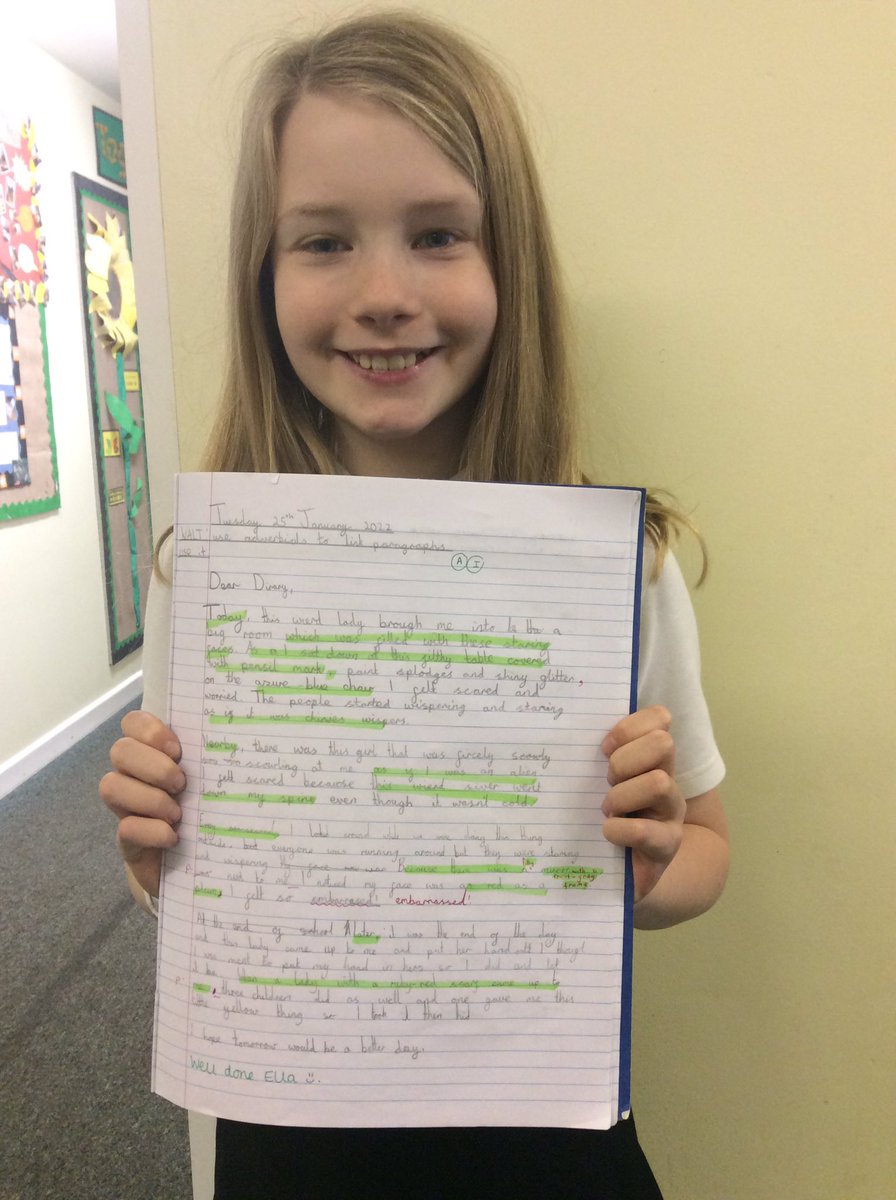 Tuesday 25th January 2022
WALT: use adverbials to link paragraphs
use it
A I
Dear Dirary,
Today, this wierd lady brough me into to the a
big room which was filled with these staring
faces. As I sat down at this filthy table covered
with pencil mark, paint splodges and shiny glitter,
on the azure blue chair I felt scared and
worried. The people started wispering and staring
as if it was chinves wispers.
Nearby, there was this girl that was farcely
scowrling at me as if I was an alien
I felt scared because this wierd siver went
down my spine even though it wasn't cold.
I looked around while we were doing this thing
outside, but everyone was running around but they were staring
and wispering Because there was
next to me I noticed my face was as red as a
plum, I felt so embarrassed!
At the end of school Later, it was the end of the day
and this lady came up to me and put her hand out I thougt
I was ment to put my hand in hers so I did and
a lady with a ruby-red scarf came up to
me, three children did as well and one gave me this
little yellow thing so I took it then hid
I hope tomorrow would be a better day.
Well done Ella